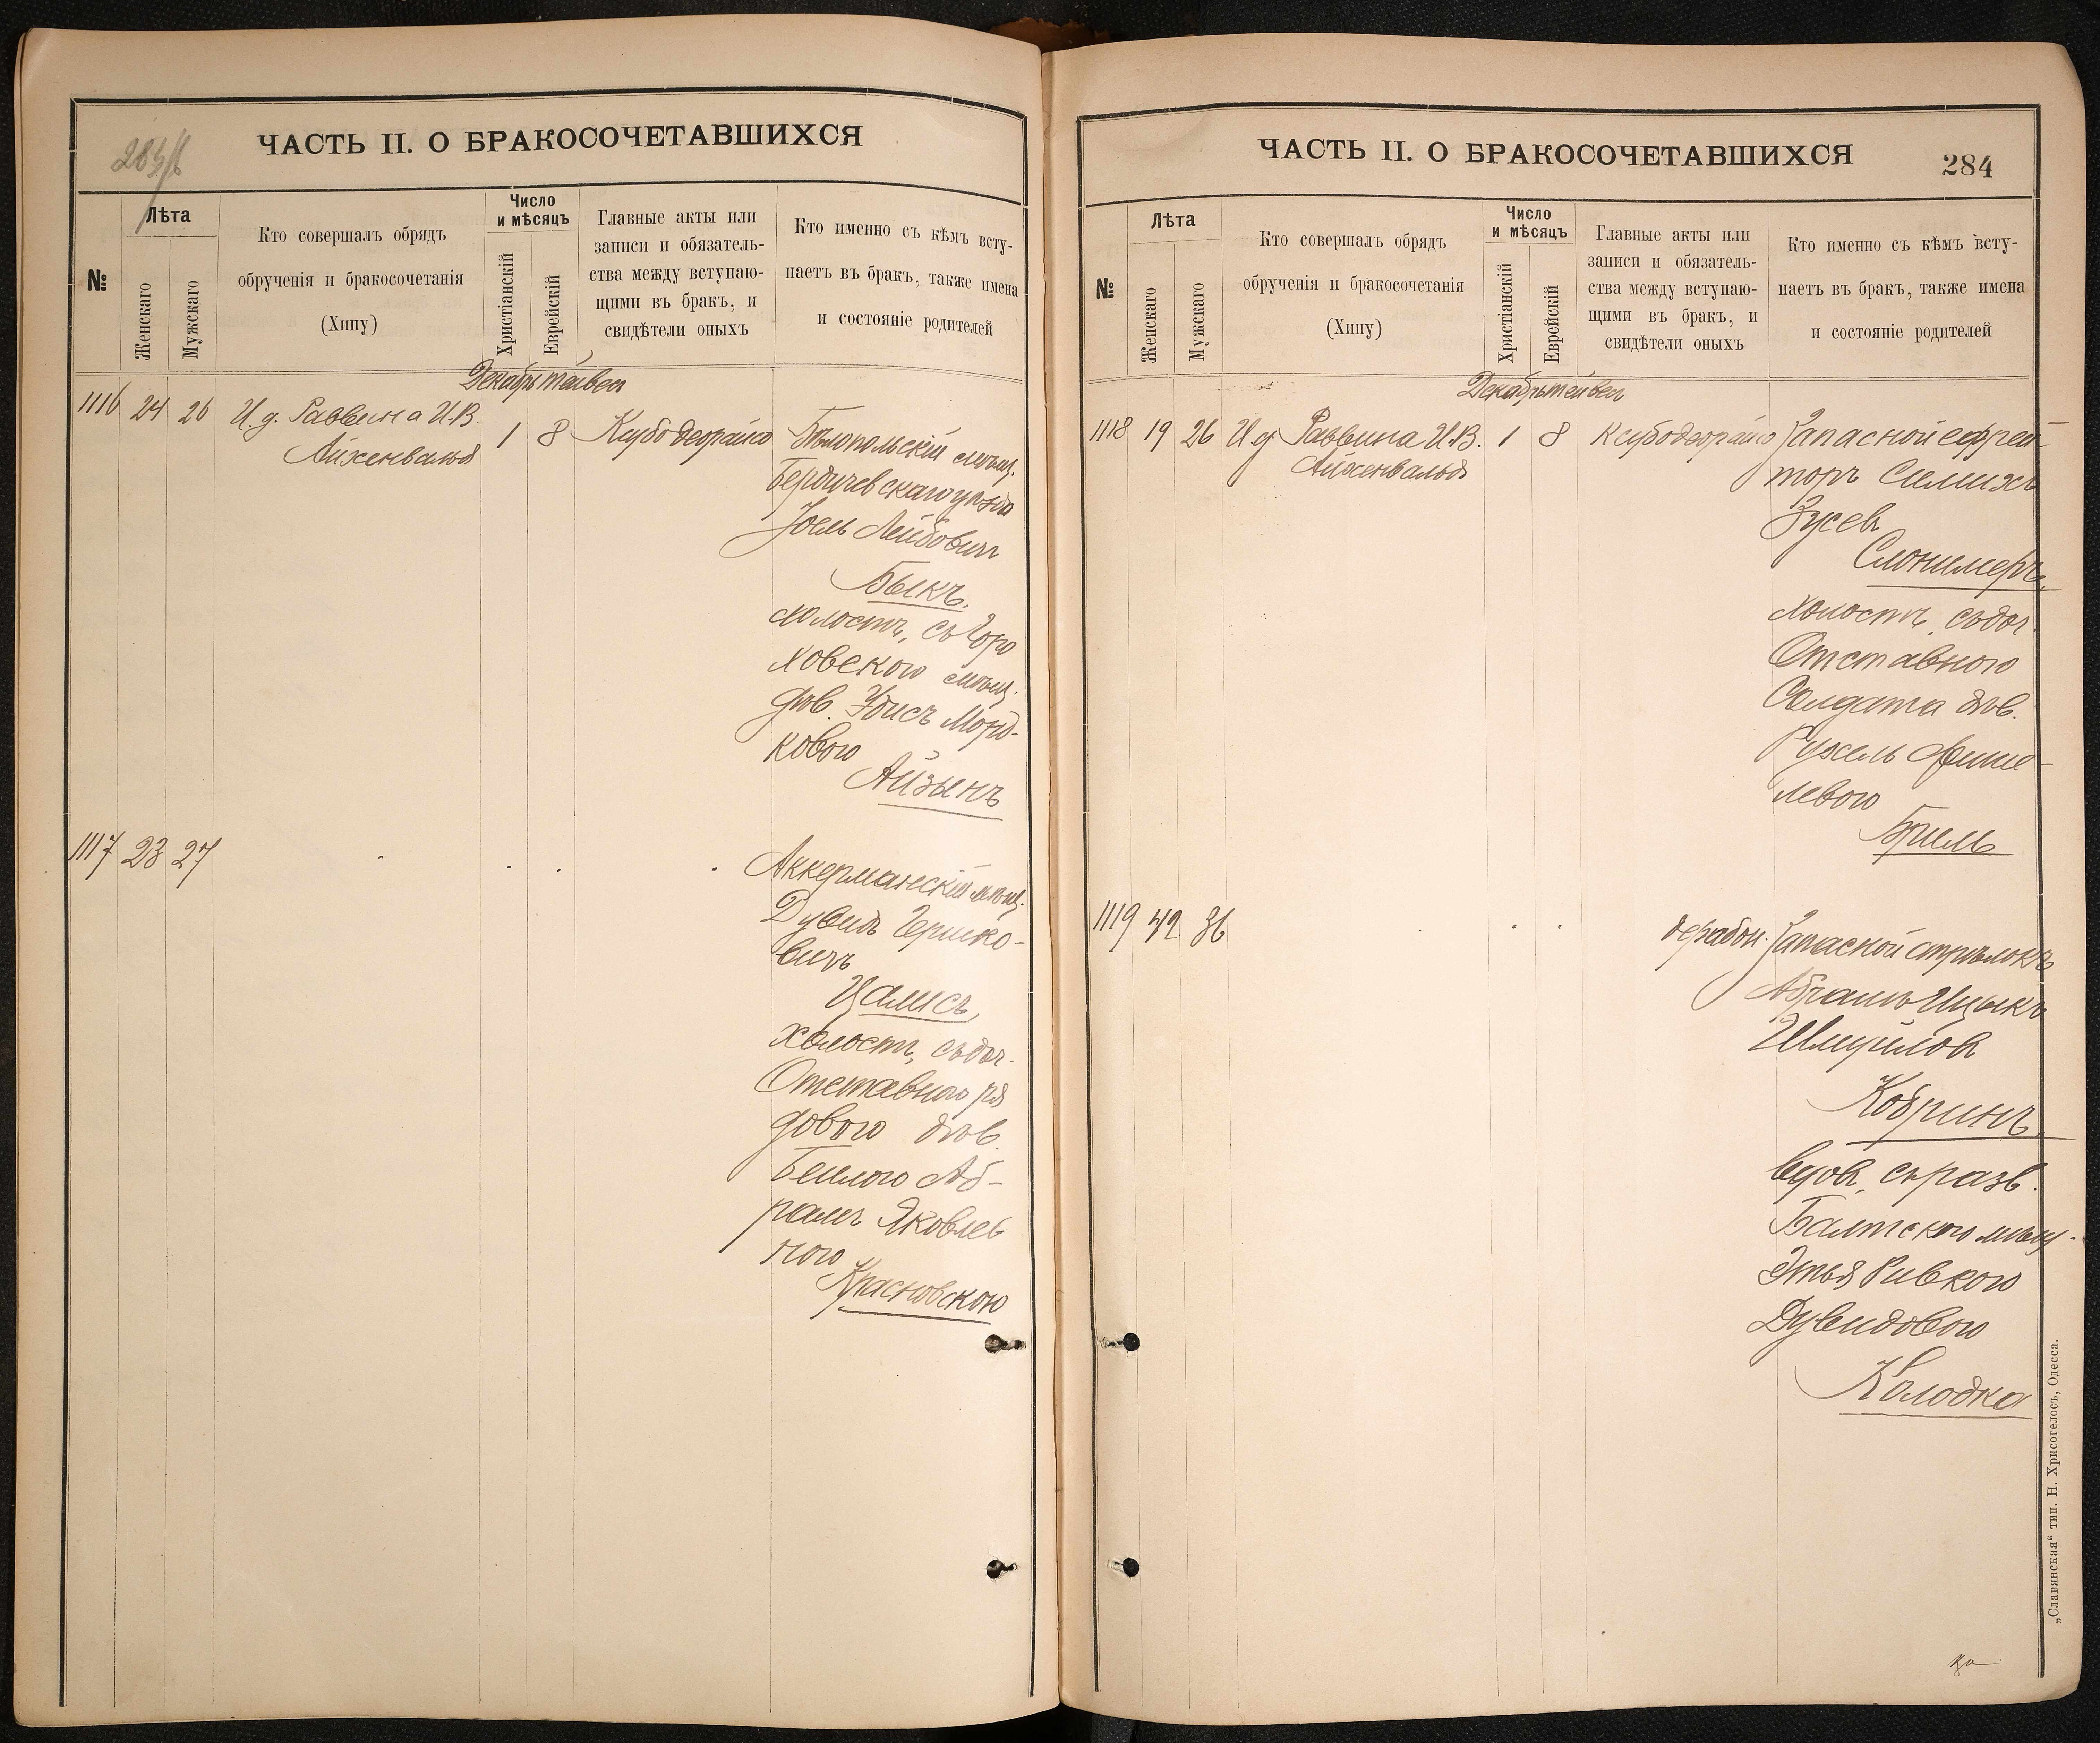 283/б
ЧАСТЬ II. О БРАКОСОЧЕТАВШИХСЯ
№
Лѣта
Женскаго
Мужскаго
Кто совершалъ обрядъ
обрученія и бракосочетанія
(Хипу)
Число
и мѣсяцъ
Христіанскій
Еврейскій
Главные акты или
записи и обязатель-
ства между вступаю-
щими въ бракъ, и
свидѣтели оныхъ
Кто именно съ кѣмъ всту-
паетъ въ бракъ, также имена
и состояніе родителей
Декабрь Тейвес
1116 24 26 И. д. Раввина И.В. 1 8 Ксубо деорайсо
Айхенвальд
Бѣлопольскій мѣщ.
Бердичевскаго уѣзда
Іоель Лейбович
Быкъ,
холостъ, съ Горо
ховскою мѣщ.
дѣв. Эдись Морд-
ковою
Айзынъ
1117 23 27
Аккерманскій мѣщ.
Дувидъ Гершко-
вичъ
Цалисъ,
холостъ, съ доч.
Отставного ря
дового дѣв.
Бейлою Аб-
рамъ Яковлев
ною
Красновскою
ЧАСТЬ II. О БРАКОСОЧЕТАВШИХСЯ
284
№
Лѣта
Женскаго
Мужскаго
Кто совершалъ обрядъ
обрученія и бракосочетанія
(Хипу)
Число
и мѣсяцъ
Христіанскій
Еврейскій
Главные акты или
записи и обязатель-
ства между вступаю-
щими въ бракъ, и
свидѣтели оныхъ
Кто именно съ кѣмъ всту-
паетъ въ бракъ, также имена
и состояніе родителей
Декабрь Тейвес
1118 19 26 И д Раввина И.В. 1 8 Ксубо деорайсо
Айхенвальд
Запасной ефрей-
торъ Симихъ
Зусев
Слонимеръ,
холостъ, съ доч.
Отставного
Солдата дѣв.
Рухель Фише-
левою
Бриль
1119 42 36 дерабон.
Запасной стрѣлокъ
Абрамъ Ицыкъ
Шмуйлов
Кобринъ,
вдов, съ разв.
Балтскою мѣщ.
Этья Ривкою
Дувидовою
Колодка
„Славянская“ тип. Н. Хрисогелосъ, Одесса.